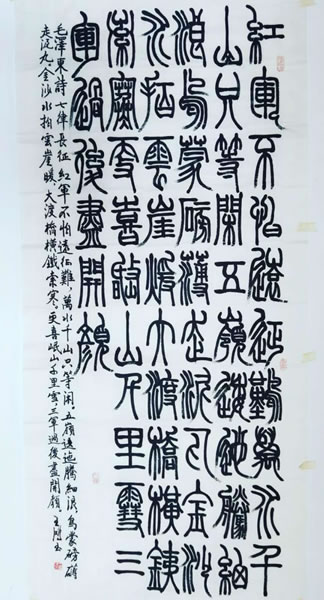 紅軍不怕遠征難萬水千
山只等閑五嶺逶迤騰細
浪烏蒙磅礴走泥丸金沙
水拍雲崖暖大渡橋橫鐵
索寒更喜岷山千里雪三
軍過後盡開顏
毛澤東詩七律長征 紅軍不怕遠征難萬水千山只等閑五嶺逶迤騰細浪烏蒙磅礴
走泥丸金沙水拍雲崖暖大渡橋橫鐵索寒更喜岷山千里雪三軍過後盡開顏 王